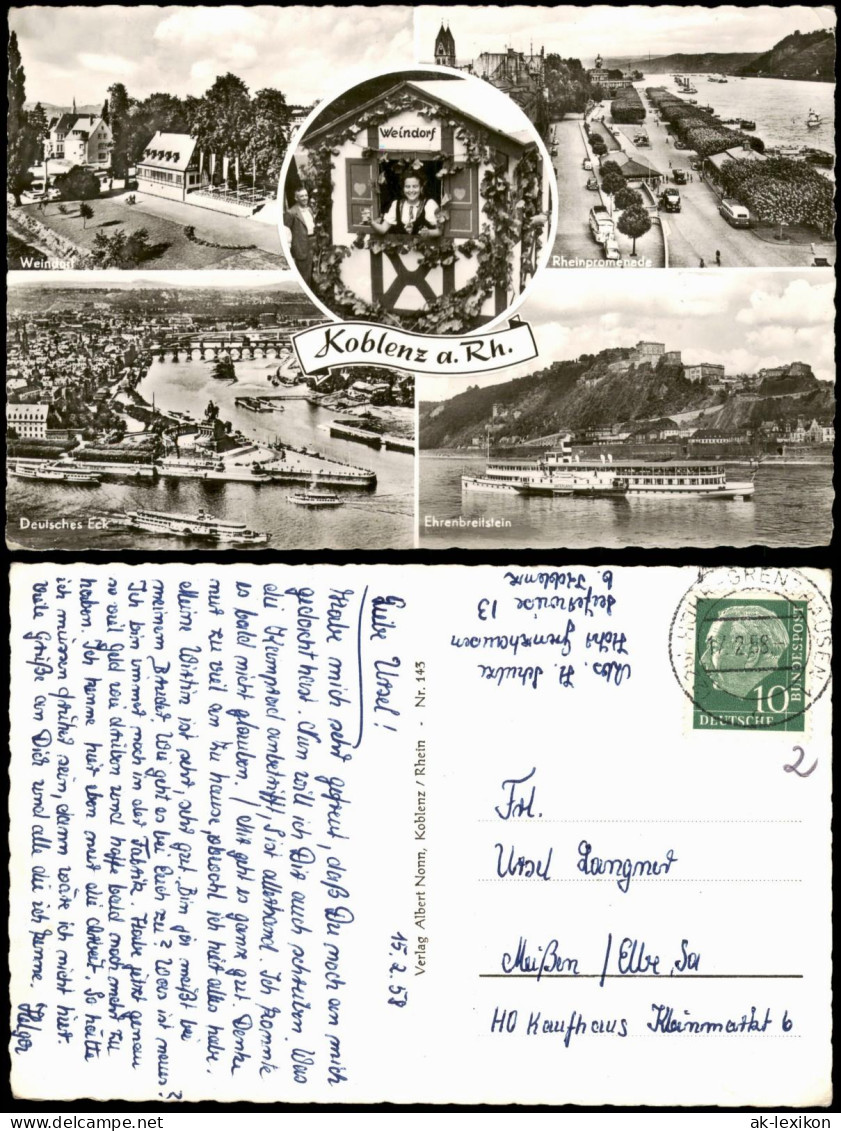 Weindorf
Weindorf
Rheinpromenade
Koblenz a. Rh.
Deutsches Eck
Ehrenbreitstein
15.2.58
Liebe Ursel!
Habe mich sehr gefreut, daß Du noch an mich
gedacht hast. Nun will ich Dir auch schreiben. Was
die betrifft, ist allerhand. Ich konnte
es bald nicht glauben. Mir geht es ganz gut. Denke
nur zu viel an zu hause, obwohl ich hier alles habe.
Meine Wirtin ist sehr, sehr gut. Bin meißt bei
meinem Bruder. Wie geht es bei Euch zu? Was ist neues?
Ich bin immer noch in der Fabrik. Habe jetzt genau
so viel Geld wie drüben und hoffe bald noch mehr zu
haben. Ich kenne hier eben nur die Arbeit. So hätte
ich müssen früher sein, dann wäre ich nicht hier.
Viele Grüße an Dich und alle die ich kenne. Holger
Verlag Albert Nonn, Koblenz / Rhein - Nr. 143
Abs. H. Schulze
Höhr Grenzhausen
13
b. Koblenz
GRENZHAUSEN 1
10
DEUTSCHE
BUNDESPOST
2
Frl.
Ursel Langner
Meißen / Elbe, Sa
HO Kaufhaus Kleinmarkt 6
ak-lexikon